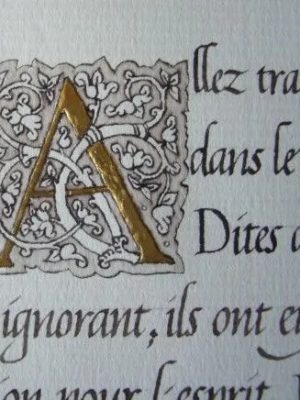 Allez tra
dans le
Dites a
ignorant, ils ont e
ion pour l'esprit